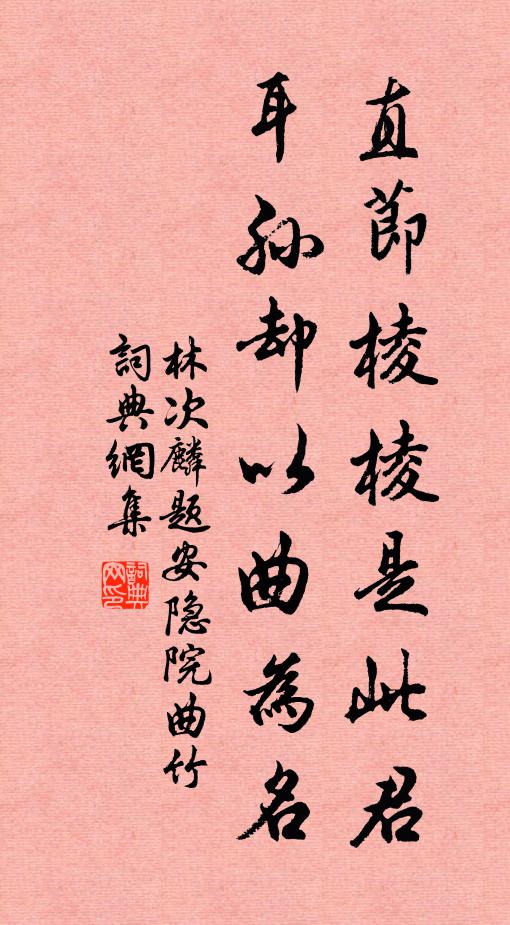 直節棱棱是此君
耳孙却以曲為名
林次麟题安隐院曲竹
詞典網集
詞典網印